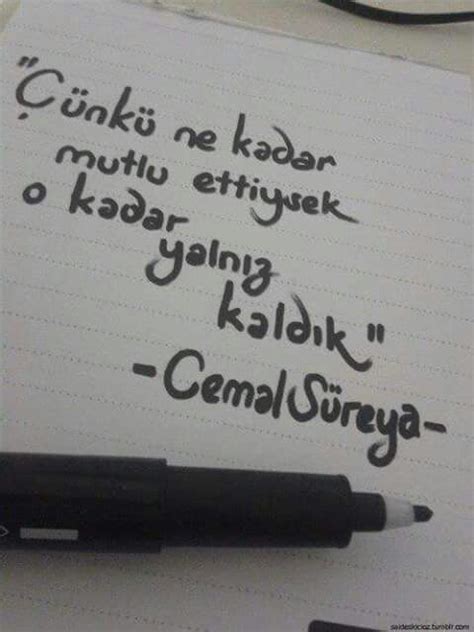 "Çünkü ne kadar
mutlu ettiysek
o kadar
yalnız
kaldık"
-Cemal Süreya-
saideskicioz.tumblr.com